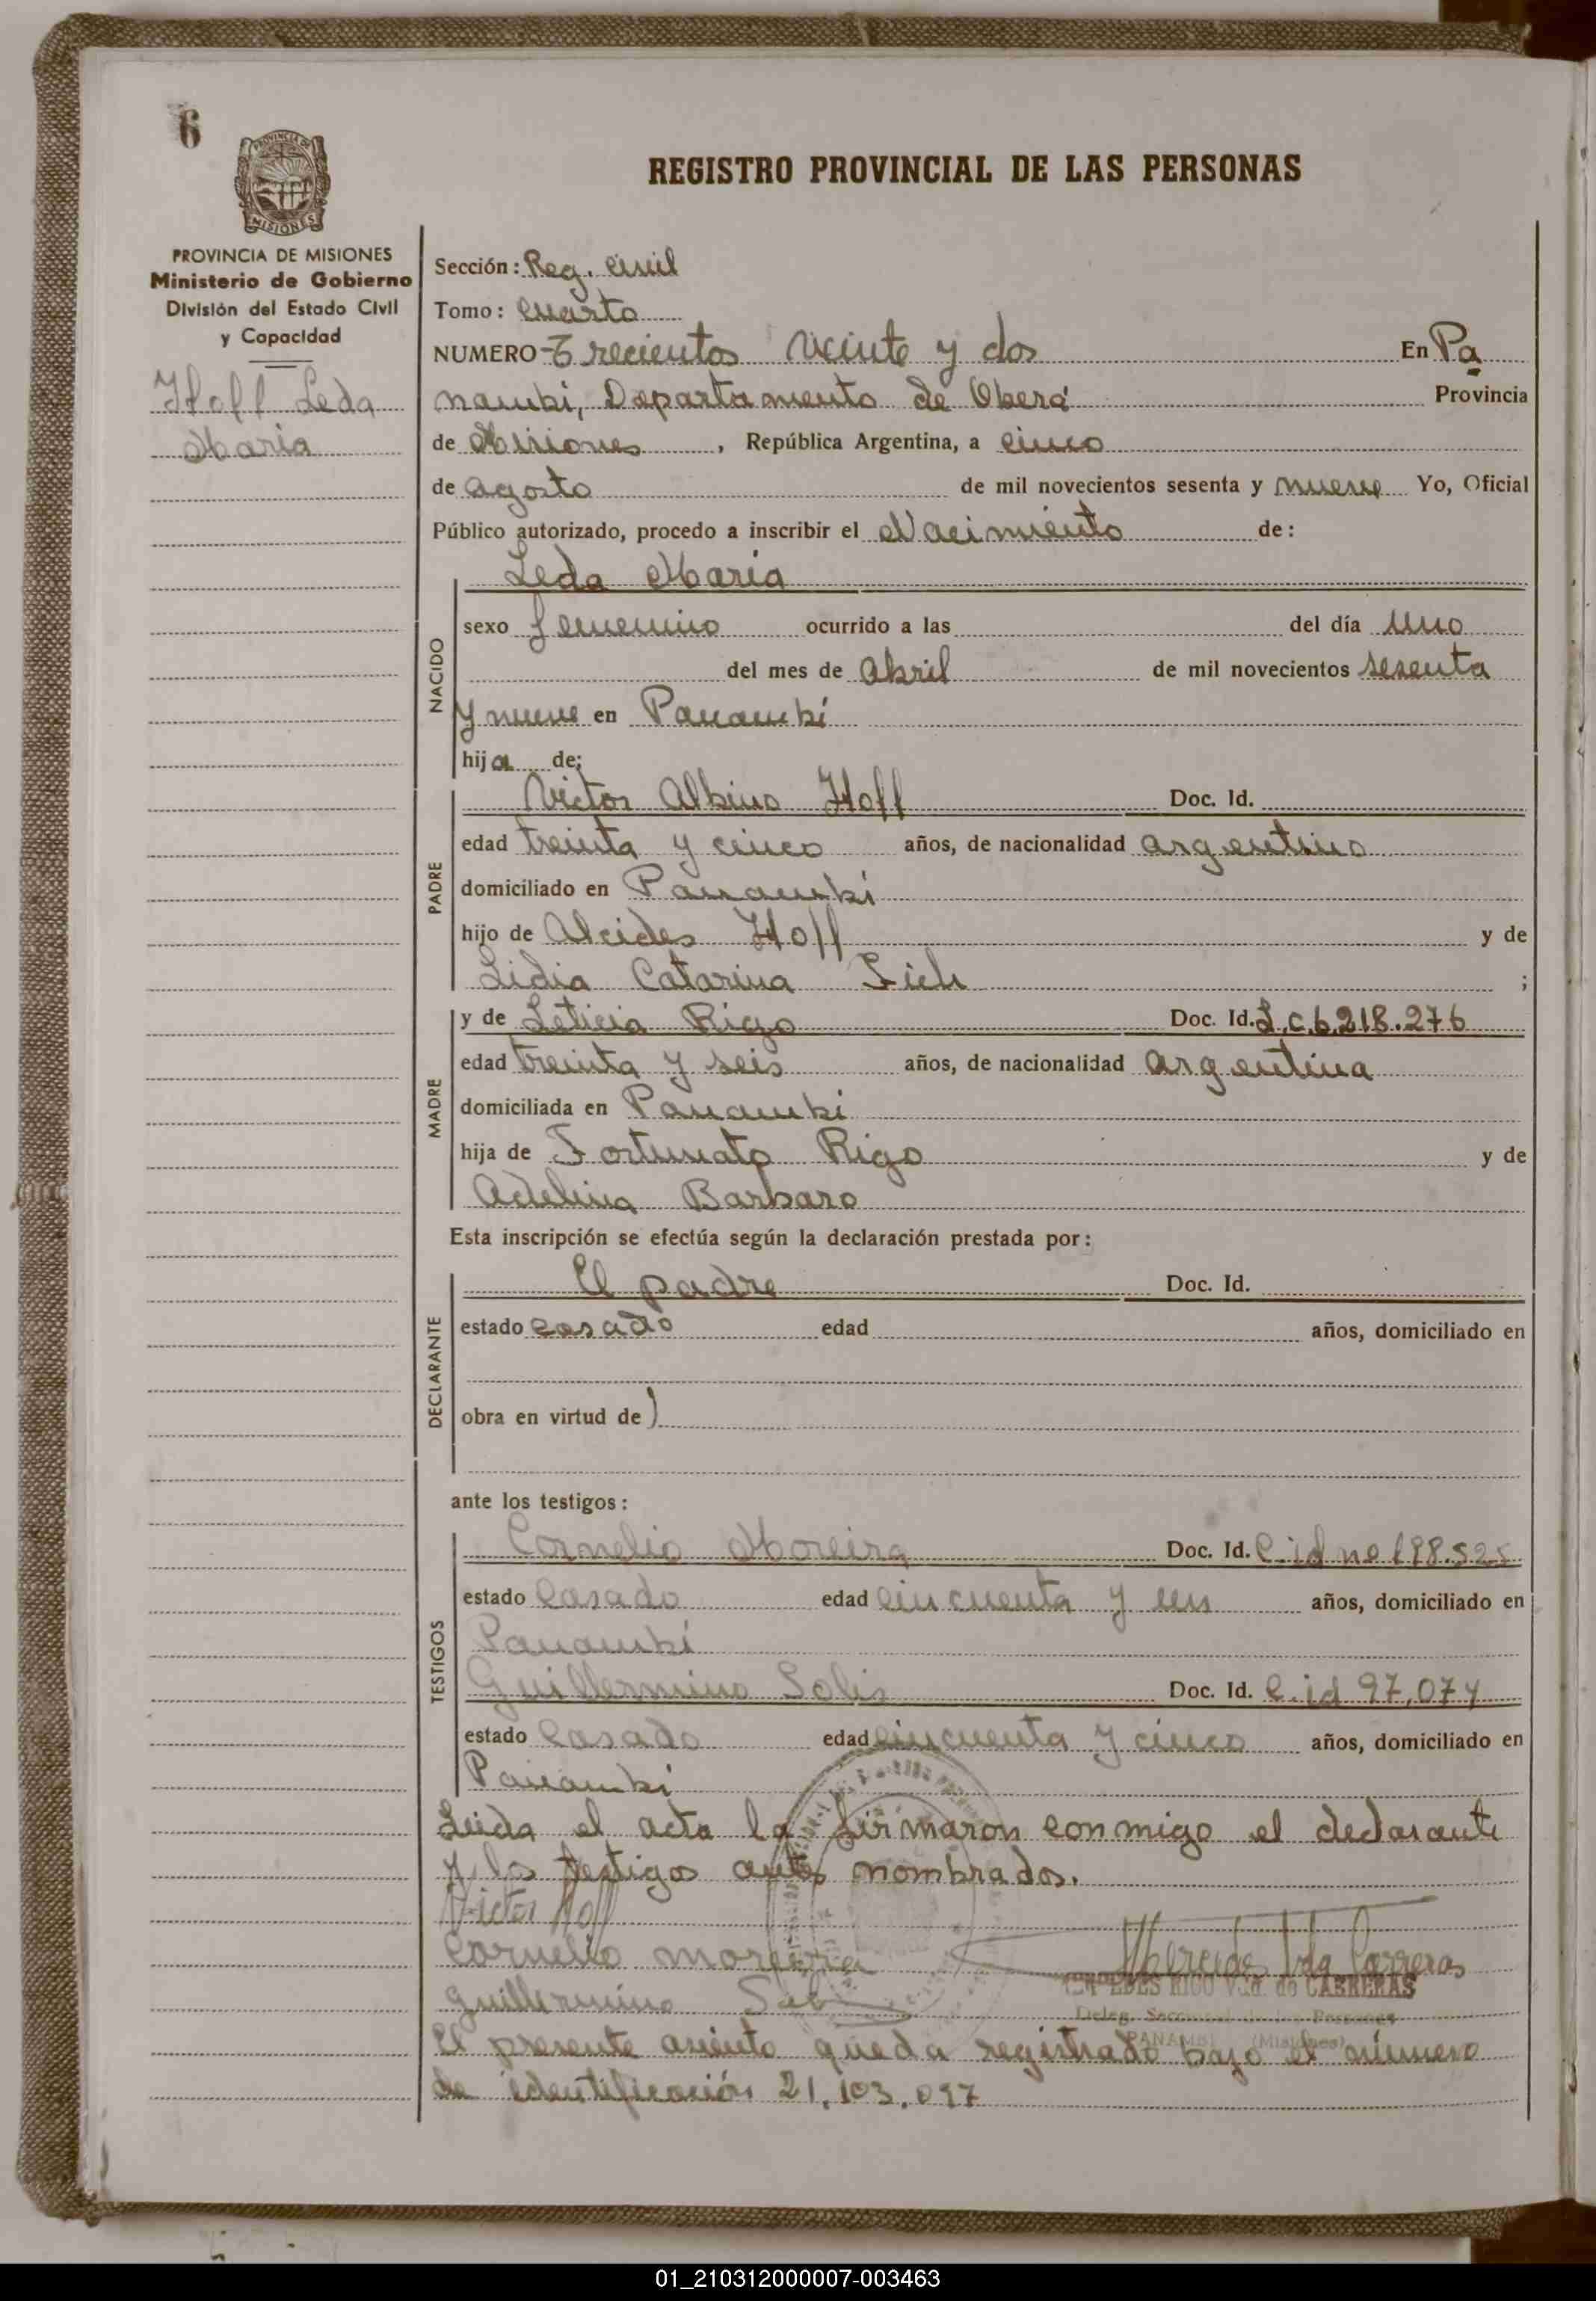 6
PROVINCIA DE
MISIONES
REGISTRO PROVINCIAL DE LAS PERSONAS
PROVINCIA DE MISIONES
Ministerio de Gobierno
División del Estado Civil
y Capacidad
Hoff Leda
Maria
Sección: Reg. Civil
Tomo: Cuarto
NUMERO Trecientos Veinte y dos En Pa
nambi, Departamento de Oberá Provincia
de Misiones, República Argentina, a cinco
de agosto de mil novecientos sesenta y nueve Yo, Oficial
Público autorizado, procedo a inscribir el Nacimiento de:
NACIDO
Leda Maria
sexo femenino ocurrido a las del día uno
del mes de Abril de mil novecientos sesenta
y nueve en Panambí
hija de:
PADRE
Victor Albino Hoff Doc. Id.
edad treinta y cinco años, de nacionalidad argentino
domiciliado en Panambí
hijo de Alcides Hoff y de
Lidia Catarina ;
MADRE
y de Leticia Rigo Doc. Id. L.C. 6.218.276
edad treinta y seis años, de nacionalidad argentina
domiciliada en Panambi
hija de Fortunato Rigo y de
Adelina Barbaro
Esta inscripción se efectúa según la declaración prestada por:
DECLARANTE
El padre Doc. Id.
estado casado edad años, domiciliado en
obra en virtud de )
ante los testigos:
TESTIGOS
Cornelio Moreira Doc. Id. C.id no 198.525
estado Casado edad cincuenta y años, domiciliado en
Panambí
Guillermino Solis Doc. Id. C.id 97,074
estado Casado edad cincuenta y cinco años, domiciliado en
Panambi
Leida el acta la firmaron conmigo el declarante
y los testigos antes nombrados.
Victor Hoff
Cornelio moreira
Mercedes Vda Carreras
MERCEDES RICO Vda. de CARRERAS
guillermino
Deleg. Seccional de las Personas
PANAMBI (Misiones)
El presente asiento queda registrado bajo el número
de identificación 21.103.097
01_210312000007-003463